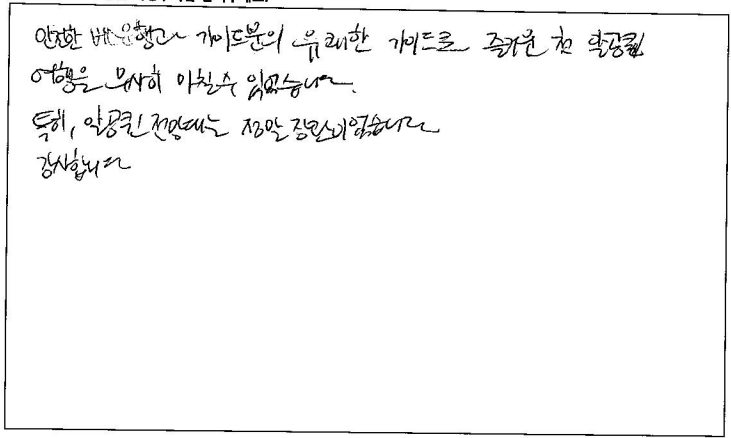 안전한 배운행과 가이드분의 유쾌한 가이드로 즐거운 첫 알공퀸
여행을 무사히 마칠수 있었습니다.
특히, 알공퀸 전망대는 정말 장관이였습니다
감사합니다